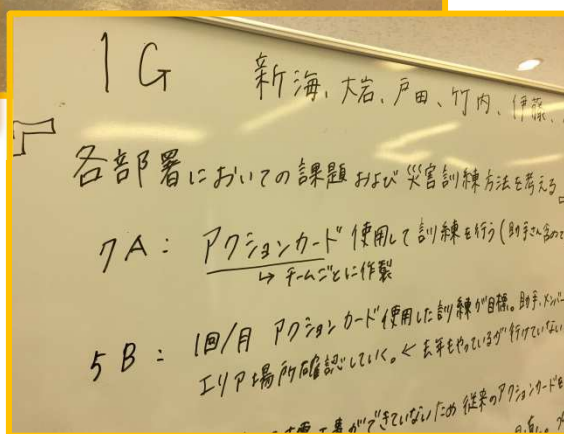 1G 新海、大岩、戸田、竹内、伊藤、
各部署においての課題および災害訓練方法を考える。
7A: アクションカード使用して訓練を行う(助手さん含めて
↳ チームごとに作製
5B: 1回/月 アクションカード使用した訓練が目標。助手、メンバー
エリア場所確認していく。← 去年もやっているが行けていない
ができていないため 従来のアクションカードを